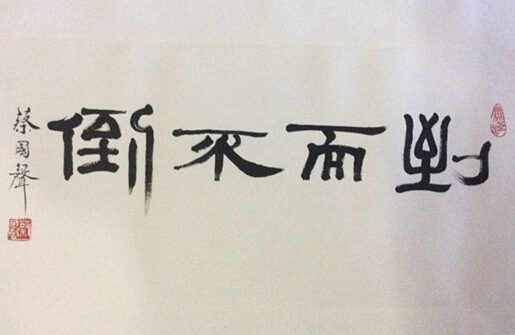 而不倒
蔡國聲